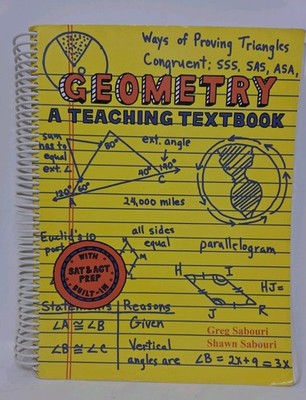 Ways of Proving Triangles
Congruent; SSS, SAS, ASA,
GEOMETRY
A TEACHING TEXTBOOK
sum
has to
equal
ext. ∠
80°
ext. angle
40° 140°
C
120° 60°
A
24,000 miles
Euclid's 10
post
all sides
equal
M
parallelogram
WITH
SAT & ACT
PREP
BUILT-IN
H I
J R
HJ=
Statements Reasons
∠A ≅ ∠B Given
∠B ≅ ∠C Vertical
angles are
∠B = 2x+9 = 3x
Greg Sabouri
Shawn Sabouri